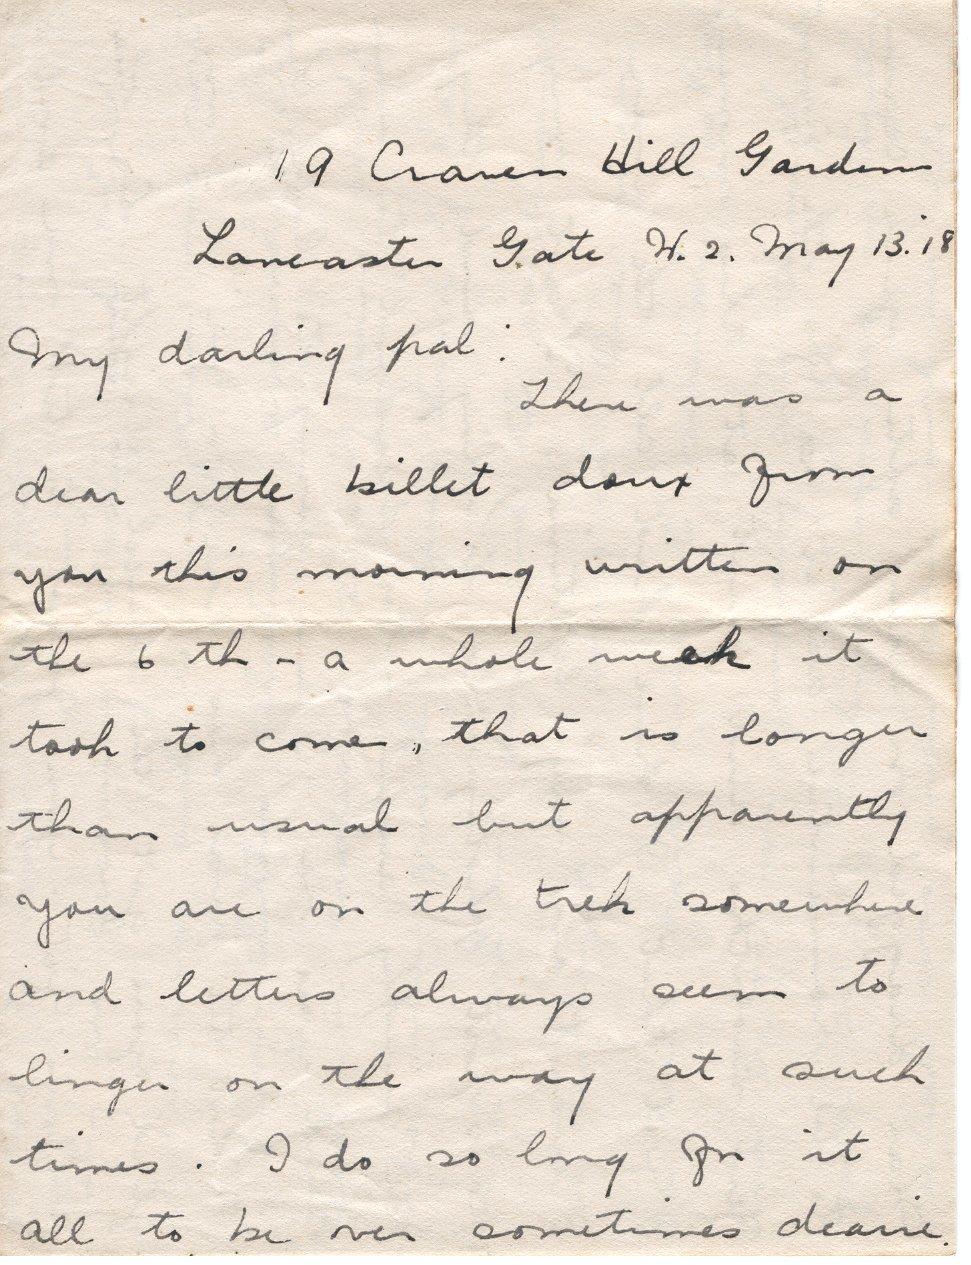 19 Craven Hill Gardens
Lancaster Gate W. 2. May 13. '18
My darling pal:
There was a
dear little billet doux from
you this morning written on
the 6 th - a whole week it
took to come, that is longer
than usual but apparently
you are on the trek somewhere
and letters always seem to
linger on the way at such
times. I do so long for it
all to be over sometimes dearie.